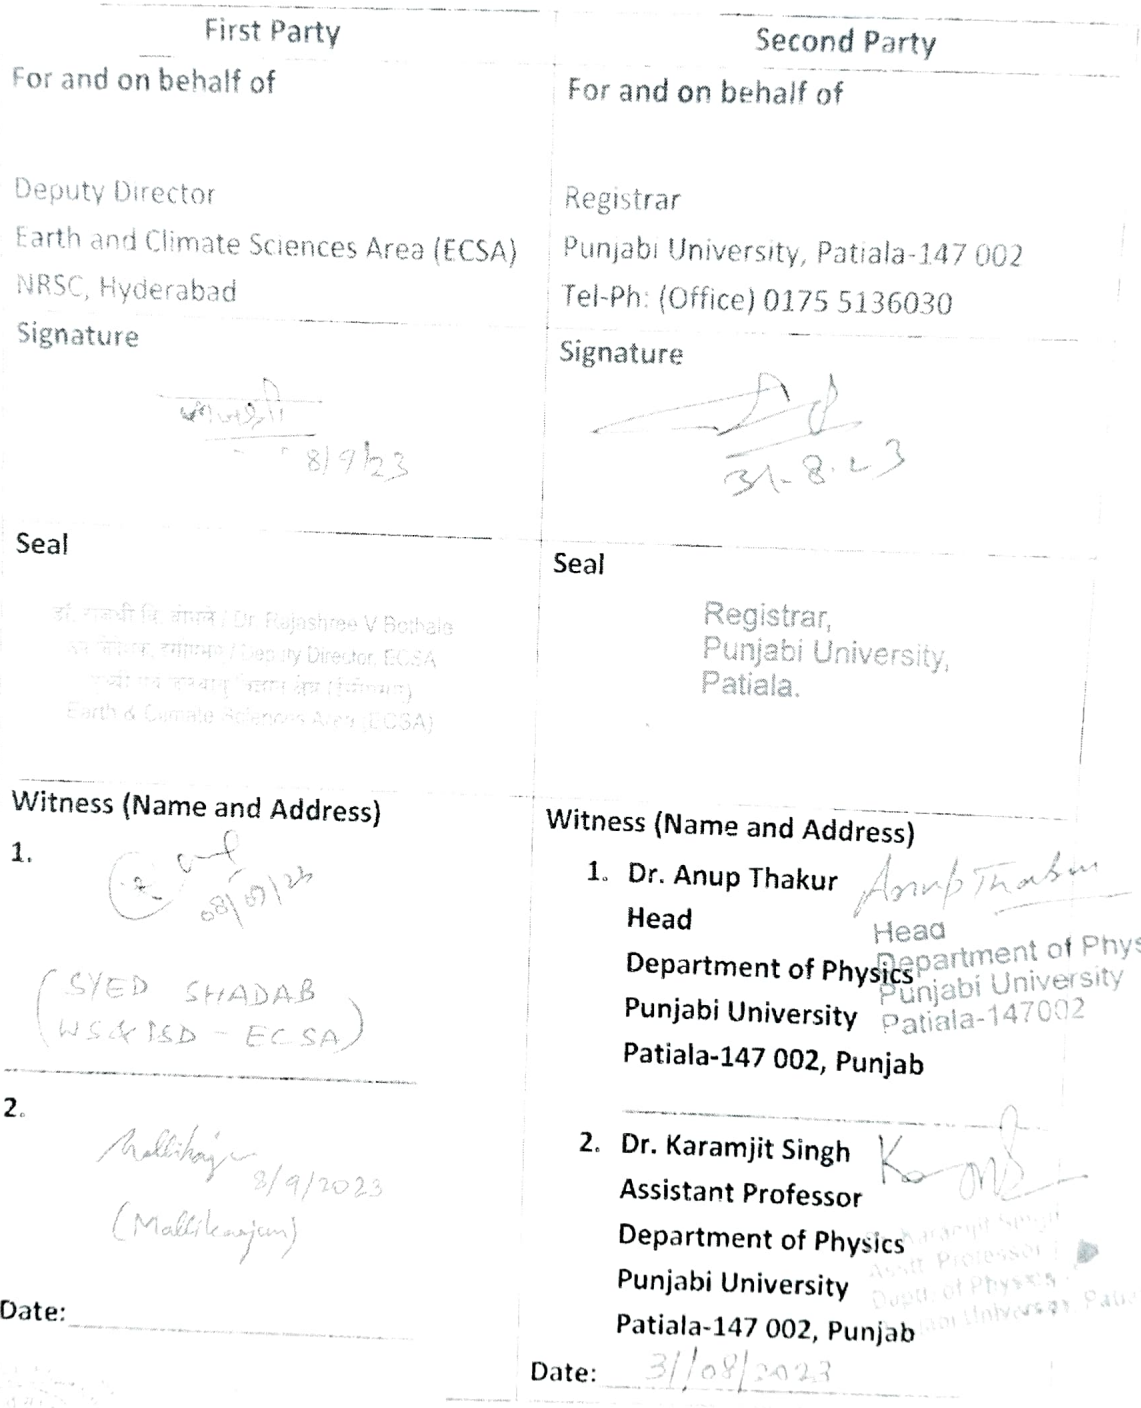 First Party
For and on behalf of
Deputy Director
Earth and Climate Sciences Area (ECSA)
NRSC, Hyderabad
Signature
8/9/23
Seal
Dr. Rajashree V Bothale
Deputy Director, ECSA
Earth & Climate Sciences Area (ECSA)
Witness (Name and Address)
1.
08/09/23
(SYED SHADAB
WS&ISD - ECSA)
2.
8/9/2023
(Mallikarjun)
Date:
Second Party
For and on behalf of
Registrar
Punjabi University, Patiala-147 002
Tel-Ph: (Office) 0175 5136030
Signature
31-8-23
Seal
Registrar,
Punjabi University,
Patiala.
Witness (Name and Address)
1. Dr. Anup Thakur
Anup Thakur
Head
Department of Physics
Punjabi University
Patiala-147 002, Punjab
Head
Department of Phys
Punjabi University
Patiala-147002
2. Dr. Karamjit Singh
Assistant Professor
Department of Physics
Punjabi University
Patiala-147 002, Punjab
Date: 31/08/2023